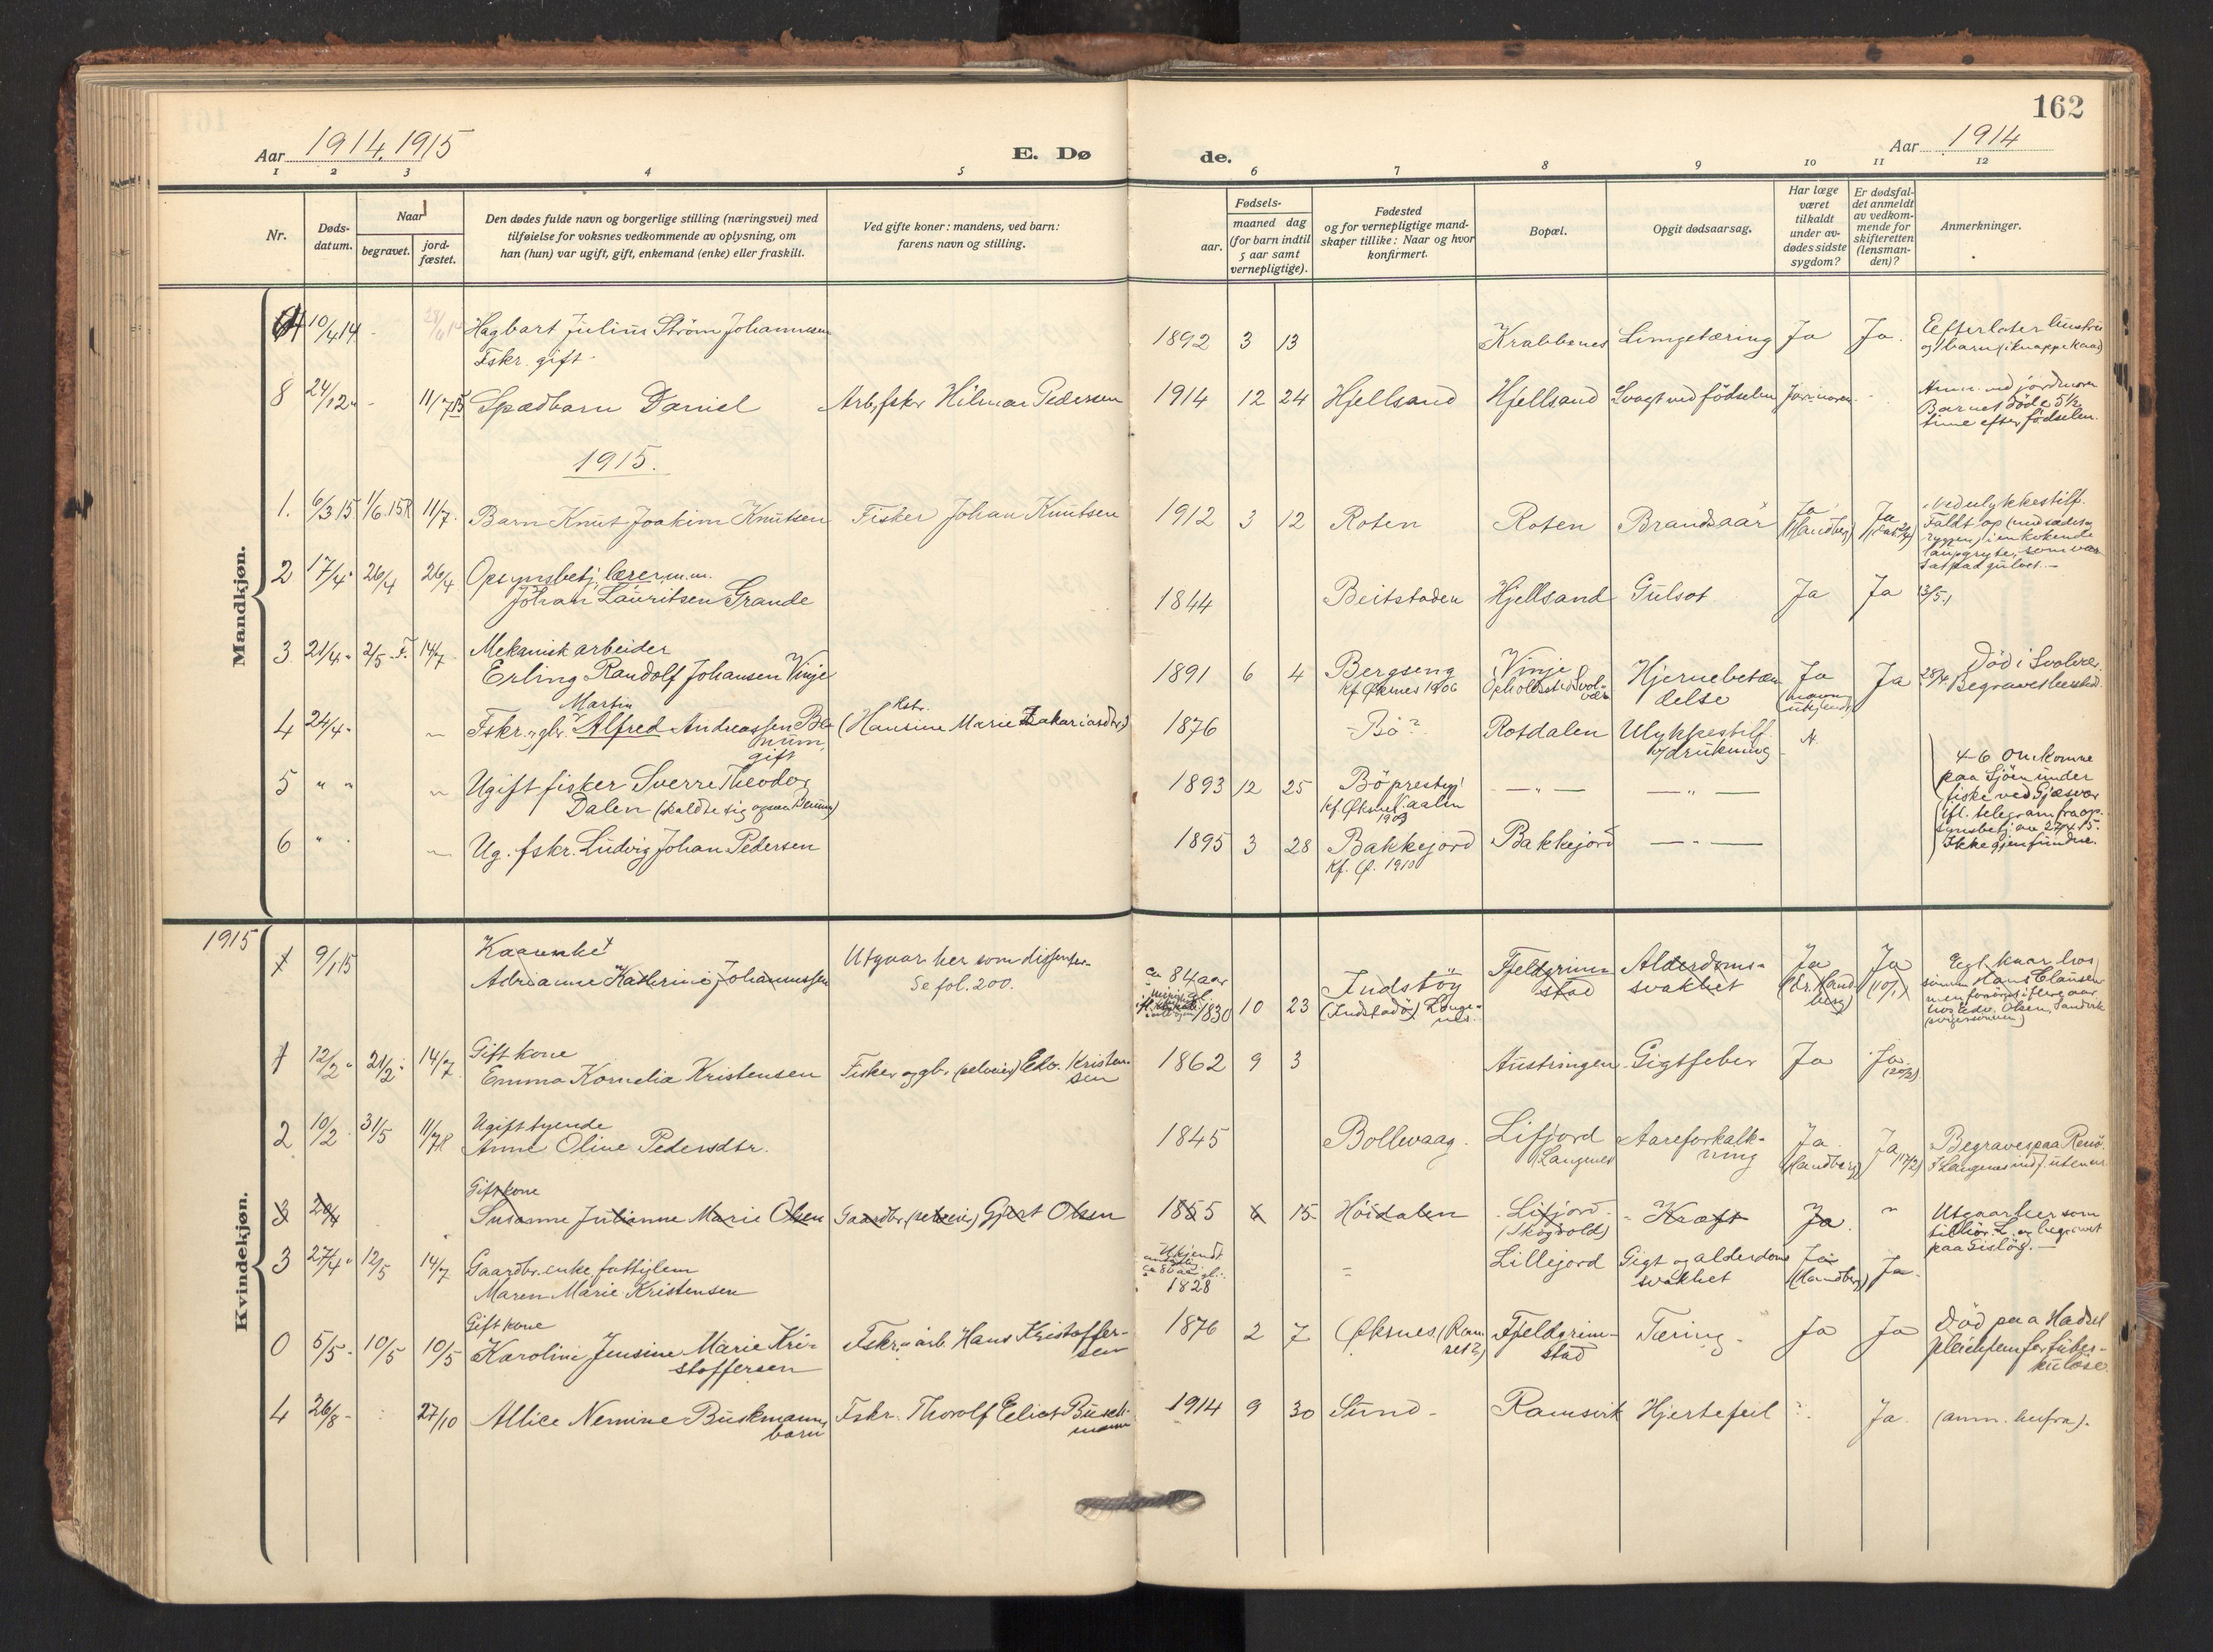 162
Aar 1914, 1915
E. Dø
de.
Aar 1914
1 2 3 4 5 6 7 8 9 10 11 12
Nr.
Døds-
datum.
Naar
begravet.
jord-
fæstet.
Den dødes fulde navn og borgerlige stilling (næringsvei) med
tilføielse for voksnes vedkommende av oplysning, om
han (hun) var ugift, gift, enkemand (enke) eller fraskilt.
Ved gifte koner: mandens, ved barn:
farens navn og stilling.
Fødsels-
aar.
maaned dag
(for barn indtil
5 aar samt
vernepligtige).
Fødested
og for vernepligtige mand-
skaper tillike: Naar og hvor
konfirmert.
Bopæl.
Opgit dødsaarsag.
Har læge
været
tilkaldt
under av-
dødes sidste
sygdom?
Er dødsfal-
det anmeldt
av vedkom-
mende for
skifteretten
(lensman-
den)?
Anmerkninger.
Mandkjøn.
10/4 14 Hagbart Julius Strøm Johannesen 1892 3 13 Krabbenes Lungetæring Ja Ja. Efterlater hustru
Fskr. gift
og 1 barn
8 24/12 " - 11/7 15 Spædbarn Daniel Arb., fskr Hilmar Pedersen 1914 12 24 Hjellsand Hjellsand Svagt ved fødselen Jormoren Anm. ved jordmoren
Barnet døde 5½
time efter fødselen.
1915.
1. 6/3 15 1/6. 15 R 11/7. Barn Knut Joakim Knutsen Fisker Johan Knutsen 1912 3 12 Roten Roten Brandsaar Ja (Handberg) Ja Ved ulykkestilf.
Faldt op (med sædet og
ryggen) i en kokende
som var
sat paa gulvet. -
2 17/4 " 26/4 26/4 Opsynsbetj., lærer m.m.
Johan Lauritsen Grande 1844 Beitstaden Hjellsand Gulsot Ja Ja 13/5.
3 21/4 " 2/5 - F. 14/7 Mekanisk arbeider
Erling Randolf Johansen Vinje 1891 6 4 Bergseng Vinje Hjernebetæn- Ja Ja 28/4 Død i Svolvær.
Kf. Øksnes 1906 Opholdssted Svol-
vær delse (navn
ukjendt) Begravet
4 24/4 - Fskr. og gbr. Martin Alfred Andreassen Be- (Hansine Marie Zakariasdtr) 1876 - Bø? Rotdalen Ulykkestilf. N.
num, gift v/drukning
5 " " Ugift fisker Sverre Theodor
Dalen (kaldte sig ogsaa Benum) 1893 12 25 Bø prestegj - " - - " -
kf. Øksnes
1909
4-6 Omkomne
paa Sjøen under
fiske ved Gjæsvær
ifl. telegram fra op-
synsbetj. av 27/4 15.
Ikke gjenfundne.
6 " Ug. fskr. Ludvig Johan Pedersen 1895 3 28 Bakkejord Bakkejord - " -
Kf. Ø. 1910
Kvindekjøn.
1915
1 9/1 15 Kaarenke
Adrianne Katherine Johannessen Utgaar her som dissenter.
Se fol. 200. ca 84 aar
1830 10 23 Indstøy
(Indstadø) Lange-
nes. Fjeldgrim-
stad Alderdoms-
svakhet Ja
(dr. Hand-
berg) Ja
(10/1) Egl. kaar hos
sønnen Hans Clausen
men forøvrig i flere aar
hos Edv. Olsen, Sandvik
1 12/2 " 21/2 - 14/7 Gift kone
Emma Kornelia Kristensen Fisker og gbr. (selveier) Edv. Kristen-
sen 1862 9 3 Austringen Gigtfeber Ja Ja
(20/2).
2 10/2 31/5 11/7 R Ugift tyende
Anne Oline Pedersdtr. 1845 Bollvaag. Lifjord
(Langenes Aareforkalk-
ning Ja.
(Handberg) Ja (17/2) Begraves paa Renø
3 20/4 Gift kone
Susanne Julianne Marie Olsen Gaardbr. (selveier) Gjert Olsen 1855 6 15 Høidalen Lifjord.
(Skogvold) Kræft Ja. " Utgaar her som
tilhør. L. og begravet
paa Gisløy. -
3 27/4 " 12/5 14/7 Gaardbr. enke, fattiglem
Maren Marie Kristensen Ukjendt
ca 86 aar gl.
1828 = Lillejord Gigt og alderdoms
svakhet Ja
(Handberg) Ja.
0 5/5 - 10/5 10/5 Gift kone
Karoline Jensine Marie Kri-
stoffersen Fskr. arb. Hans Kristoffer-
sen 1876 2 7 Øksnes, (Ram-
set?) Fjeldgrim-
stad Tæring - Ja Ja Død paa Hadsel
pleiehjem for tuber-
kuløse.
4 26/8 - 27/10 Allice Nemine Buskmann,
barn Fskr. Thorolf Eeliot Busch-
mann 1914 9 30 Sund - Ramsvik Hjertefeil Ja. (anm. herfra).